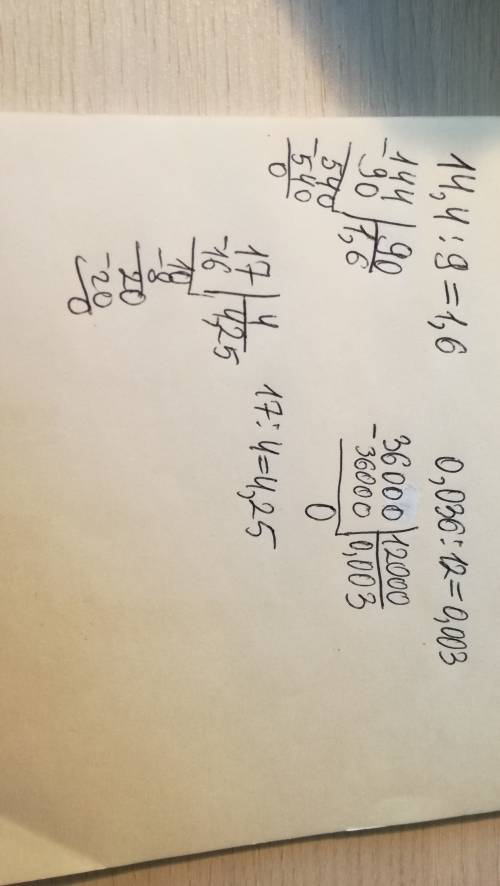 14,4 : 9 = 1,6
144 | 90
-90 | 1,6
540
-540
0
0,036 : 12 = 0,003
36000 | 12000
-36000 | 0,003
0
17 | 4
-16 | 4,25
10
-8
20
-20
0
17 : 4 = 4,25